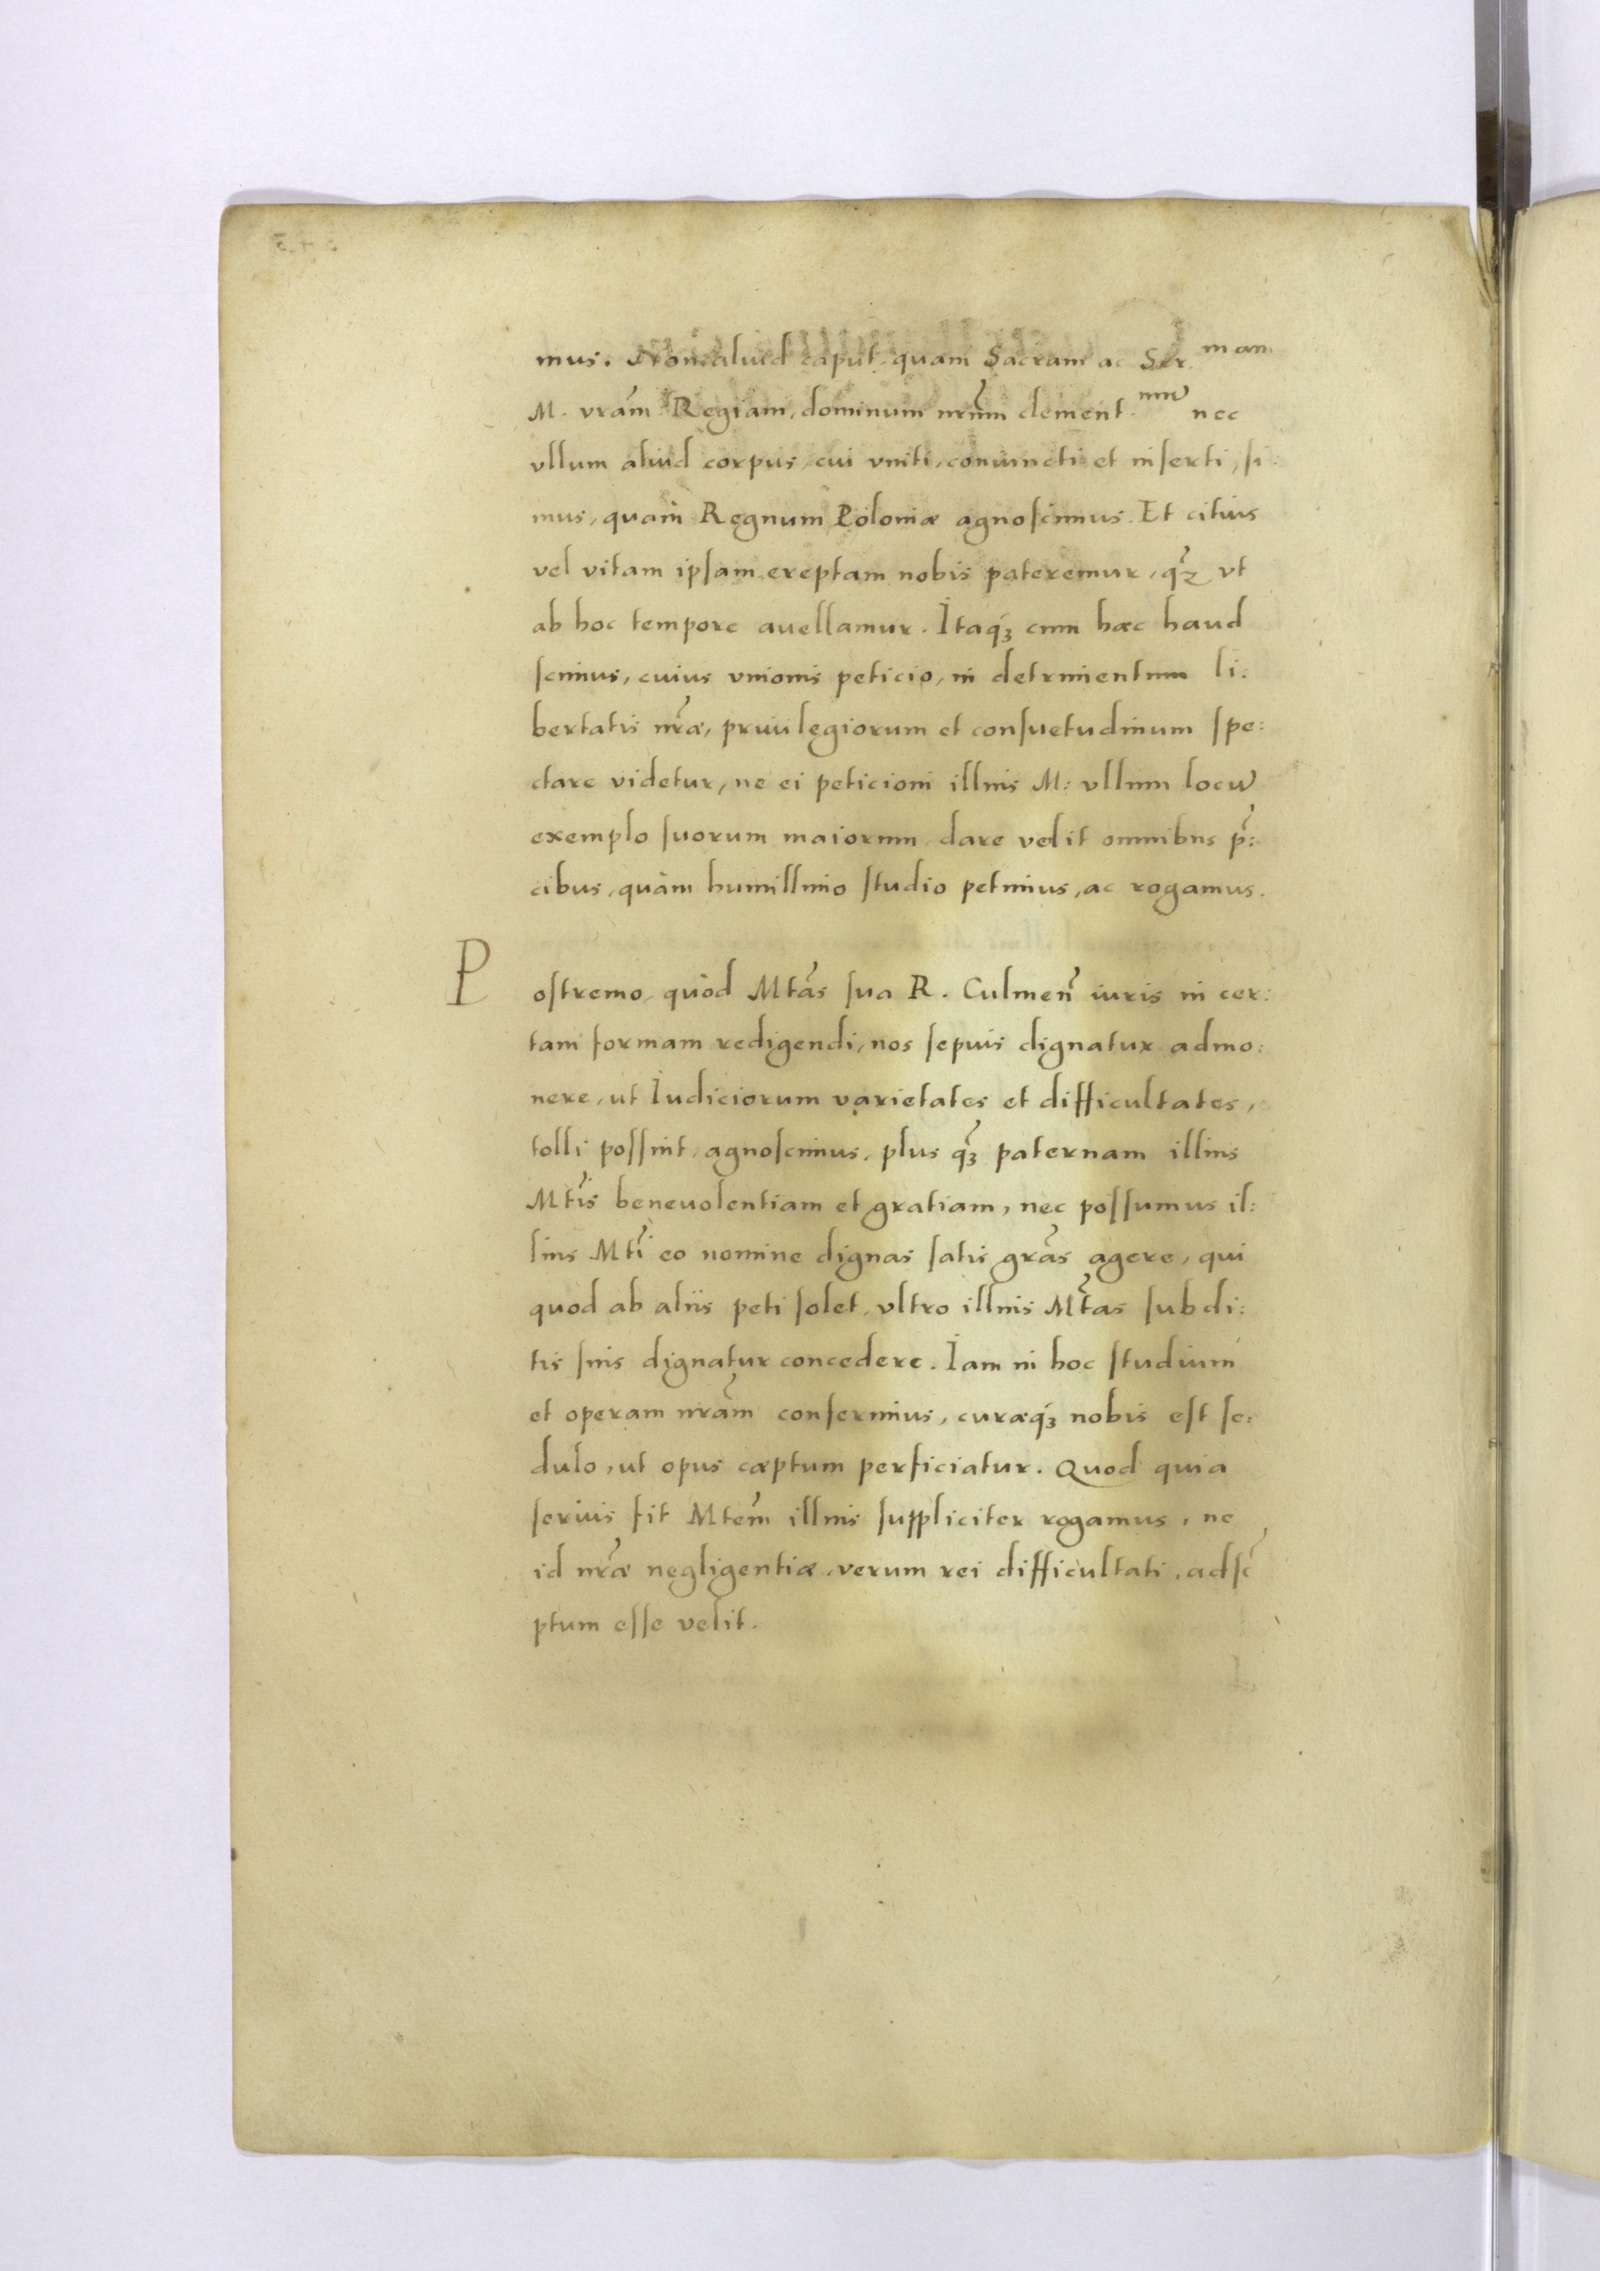 mus. Non aliud caput, quam Sacram ac Ser. mam
M. vrãm Regiam, dominum nrũm clement. mũ nec
vllum aliud corpus, cui vniti, coniuncti et inserti, si:
mus, quam Regnum Poloniæ agnoscimus. Et citius
vel vitam ipsam ereptam nobis pateremur, q̃z vt
ab hoc tempore auellamur. Itaqꝫ cum hæc haud
scimus, cuius vnionis peticio, in detrimentum li:
bertatis nrãe, priuilegiorum et consuetudinum spe:
ctare videtur, ne ei peticioni illius M: vllum locũ
exemplo suorum maiorum dare velit omnibus p̃:
cibus, quàm humillimo studio petimus, ac rogamus.
Postremo, quòd Mtãs sua R. Culmeñ iuris in cer:
tam formam redigendi, nos sepius dignatur admo:
nere, ut Iudiciorum varietates et difficultates,
tolli possint, agnoscimus, plus q̃ꝫ paternam illius
Mtĩs beneuolentiam et gratiam, nec possumus il:
lius Mtĩ eo nomine dignas satis grãs agere, qui
quod ab aliis peti solet, vltro illius Mt̃as subdi:
tis suis dignatur concedere. Iam in hoc studium
et operam nrãm conferimus, curæqꝫ nobis est se:
dulo, ut opus cæptum perficiatur. Quod quia
serius fit Mtem̃ illius suppliciter rogamus, ne
id nrãe negligentiæ, verum rei difficultati, adsc̃
ptum esse velit.